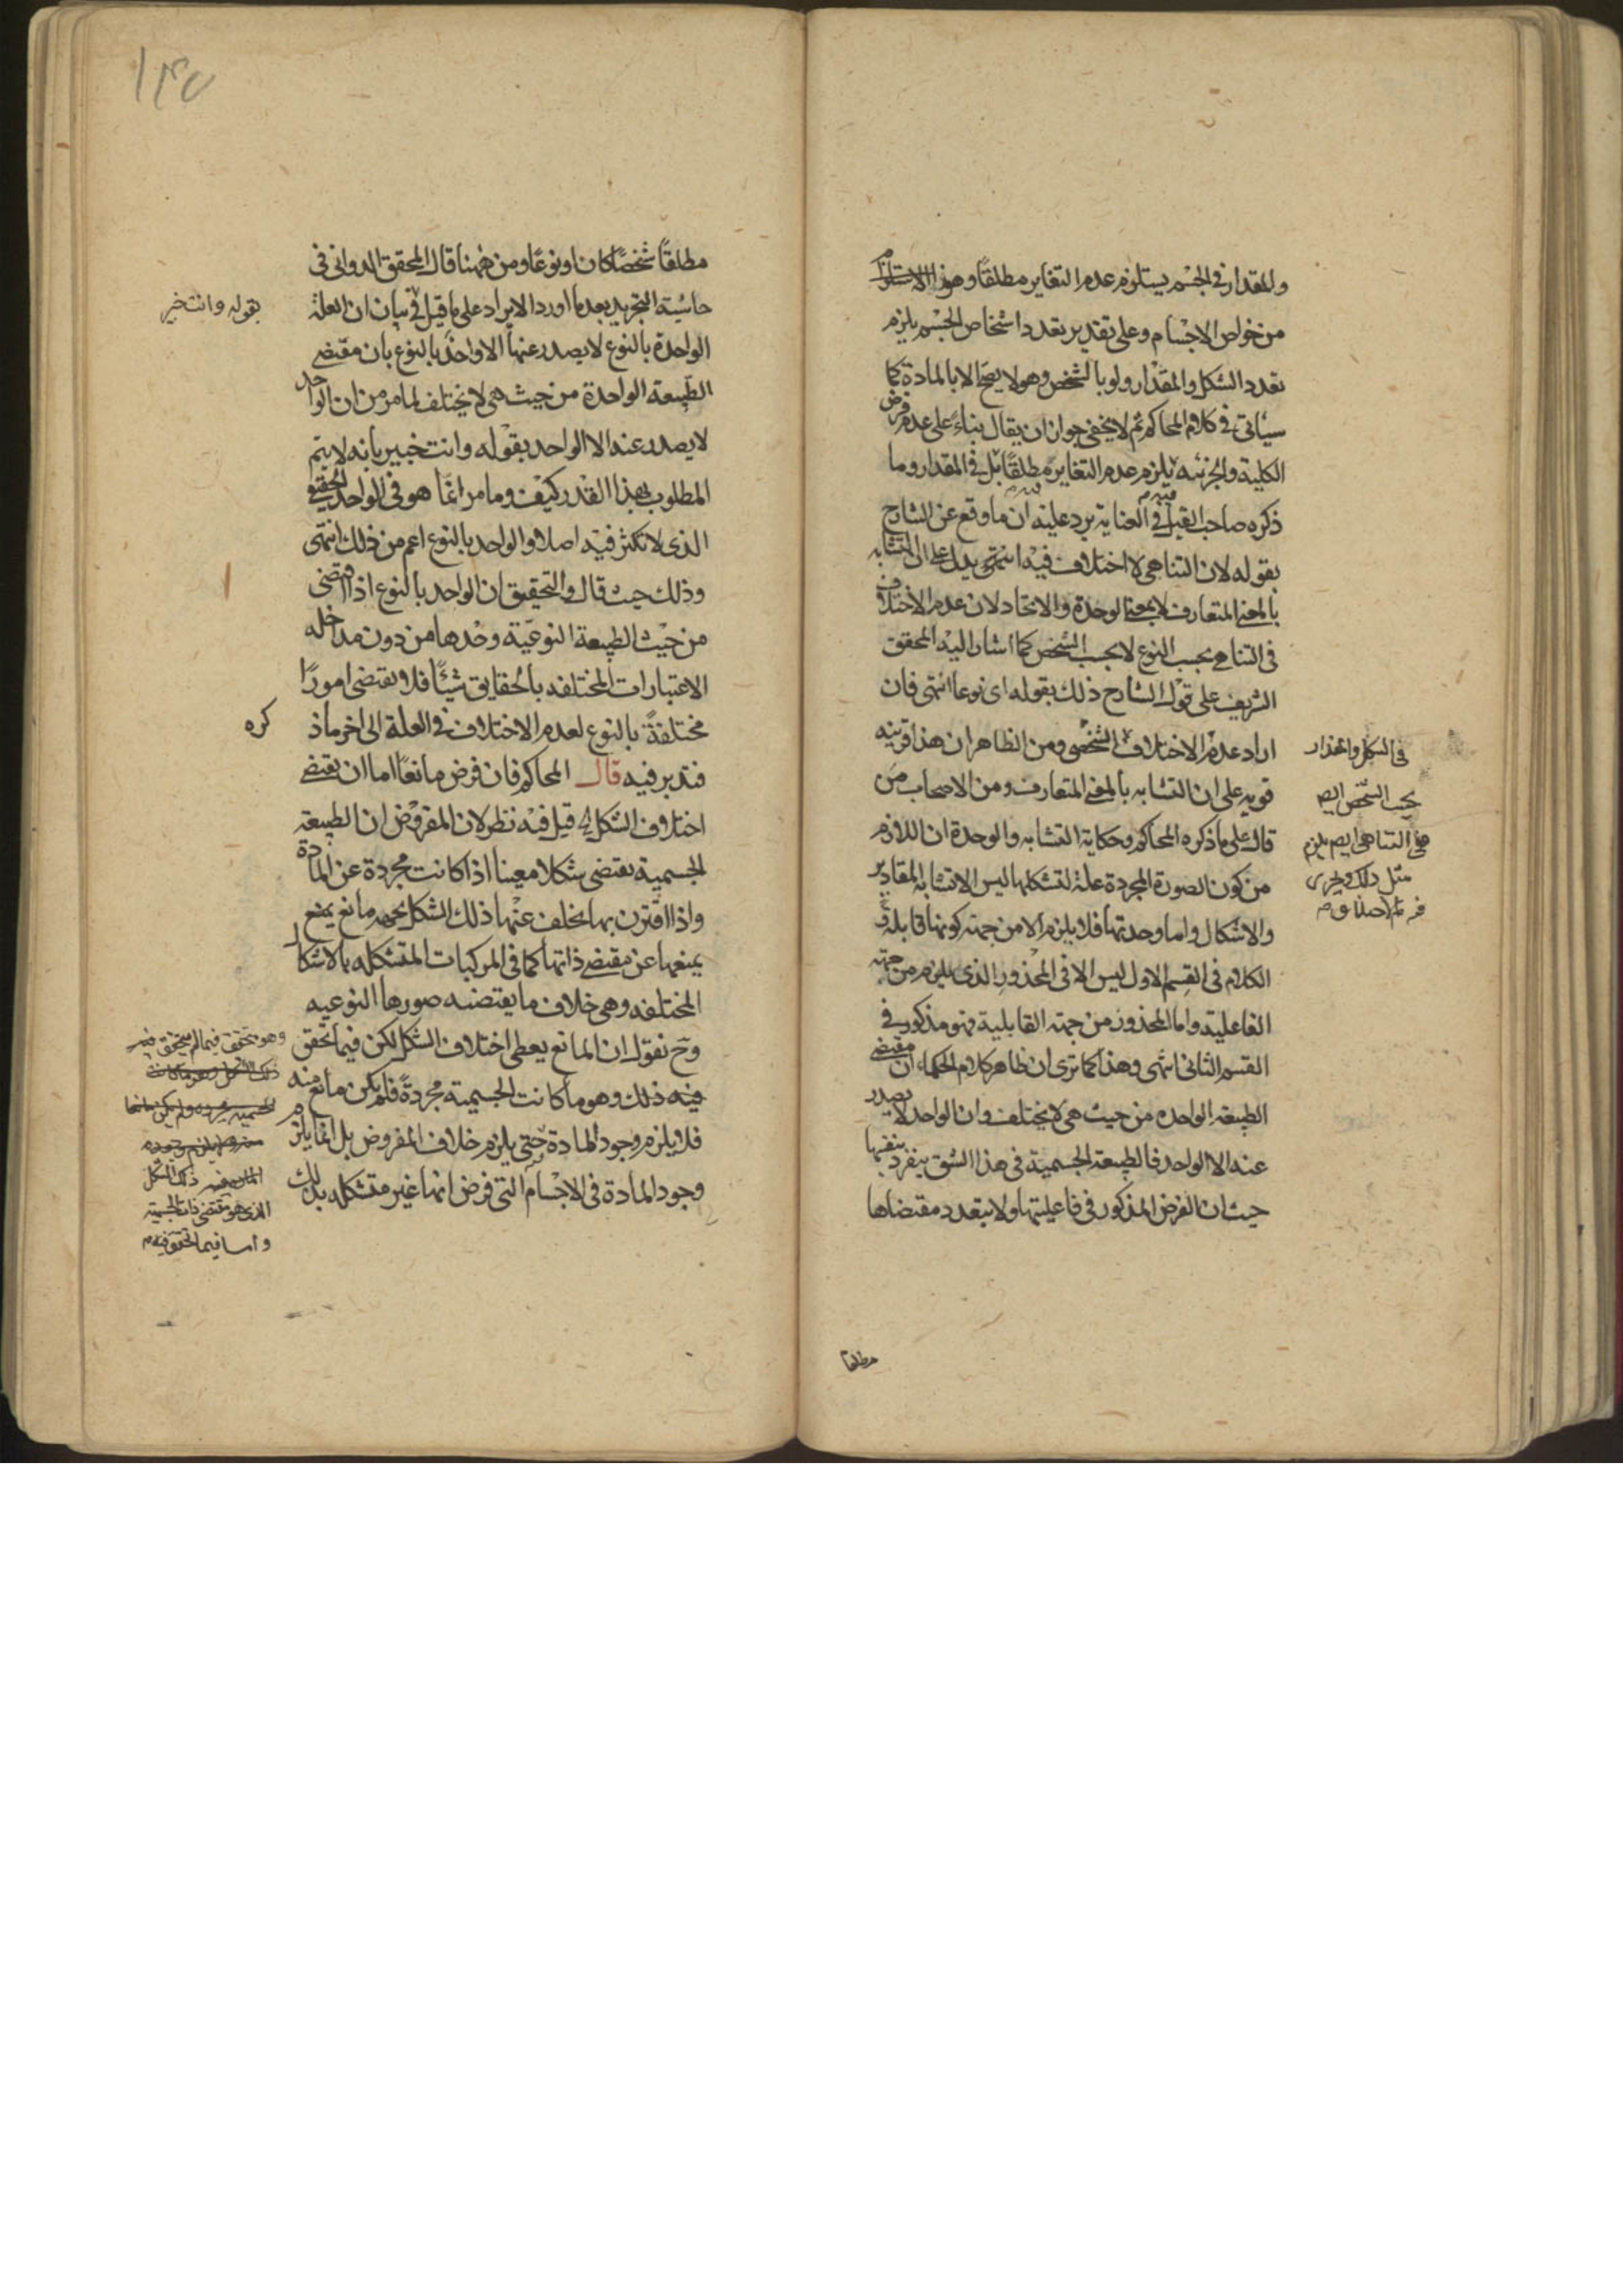 والمقدار في الجسم يستلزم عدم التغاير مطلقاً وهو
من خواص الاجسام وعلى تقدير تعدد اشخاص الجسم يلزم
تعدد الشكل والمقدار ولو بالشخص وهو لا يصح الا بالمادة كما
سيأتي في كلام المحاكم ثم لا يخفى جواز ان يقال بناءً على عدم فرض
الكلية والجزئيه يلزم عدم التغاير مطلقاً بل في المقدار وما
ذكره صاحب القيل في العناية يرد عليه ان ما وقع عن الشارح
بقوله لان التناهي لا اختلاف فيه انتهى يدل على ان التشابه
بالمعنى المتعارف لا بمعنى الوحدة والاتحاد لان عدم الاختلاف
في التناهي بحسب النوع لا بحسب الشخص كما اشار اليه المحقق
الشريف على قول الشارح ذلك بقوله اى نوعا انتهى فان
اراد عدم الاختلاف الشخصي ومن الظاهر ان هذا قرينه
قويه على ان التشابه بالمعنى المتعارف ومن الاصحاب من
قال على ما ذكره المحاكم وحكاية التشابه والوحدة ان اللازم
من كون الصورة المجردة علة لتشكلها ليس الا تشابه المقادير
والاشكال واما وحدتها فلا يلزم الا من جهة كونها قابلة و
الكلام في القسم الاول ليس الا في المحذور الذى يلزم من جهة
الفاعلية واما المحذور من جهة القابلية فهو مذكور في
القسم الثاني انتهى وهذا كما ترى ان ظاهر كلام الحكماء ان مقتضى
الطبيعة الواحده من حيث هي لا يختلف وان الواحد لا يصدر
عنه الا الواحد فالطبيعة الجسمية في هذا الشق ينفرد بنفسها
حيث ان الفرض المذكور في فاعليتها ولا يتعدد مقتضاها
في الشكل والمقدار
بحسب الشخص ايضا
التناهى ايضا يلزم
مثل ذلك
مطلقا
١٣٥
مطلقاً شخصاً كان او نوعاً ومن ههنا قال المحقق الدواني في
حاشية التجريد بعد ما اورد الايراد على ما قيل في بيان ان العلة
الواحدة بالنوع لا يصدر عنها الا واحد بالنوع بان مقتضى
الطبيعة الواحدة من حيث هي لا يختلف لما مر من ان الواحد
لا يصدر عنه الا الواحد بقوله وانت خبير بانه لا يتم
المطلوب بهذا القدر كيف وما مر انما هو في الواحد الحقيقي
الذى لا تكثر فيه اصلا والواحد بالنوع اعم من ذلك انتهى
وذلك حيث قال والتحقيق ان الواحد بالنوع اذا اقتضى
من حيث الطبيعة النوعية وحدها من دون مداخله
الاعتبارات المختلفه بالحقايق شيئاً فلا يقتضى اموراً
مختلفةً بالنوع لعدم الاختلاف في العلة الى اخر ما ذ
كره
فتدبر فيه قال المحاكم فان فرض مانعاً اما ان يقتضى
اختلاف الشكل قيل فيه نظر لان المفروض ان الطبيعة
الجسمية يقتضى شكلا معينا اذا كانت مجردة عن المادة
واذا اقترن بها تخلف عنها ذلك الشكل مانع يمنع
يمنعها عن مقتضى ذاتها كما في المركبات المتشكله بالاشكال
المختلفه وهى خلاف ما يقتضيه صورها النوعيه
وح نقول ان المانع يعطى اختلاف الشكل لكن فيما تحقق
فيه ذلك وهو ما كانت الجسمية مجردةً فلم يكن مانع منه
فلا يلزم وجود المادة حتى يلزم خلاف المفروض بل انما يلزم
وجود المادة في الاجسام التى فرض انها غير متشكله بذلك
بقوله وانت خبير
وهو تحقق فيما لم يتحقق فيه
ذلك الشكل
الذى هو مقتضى ذات الجسمية
واما فيما تحقق فيه